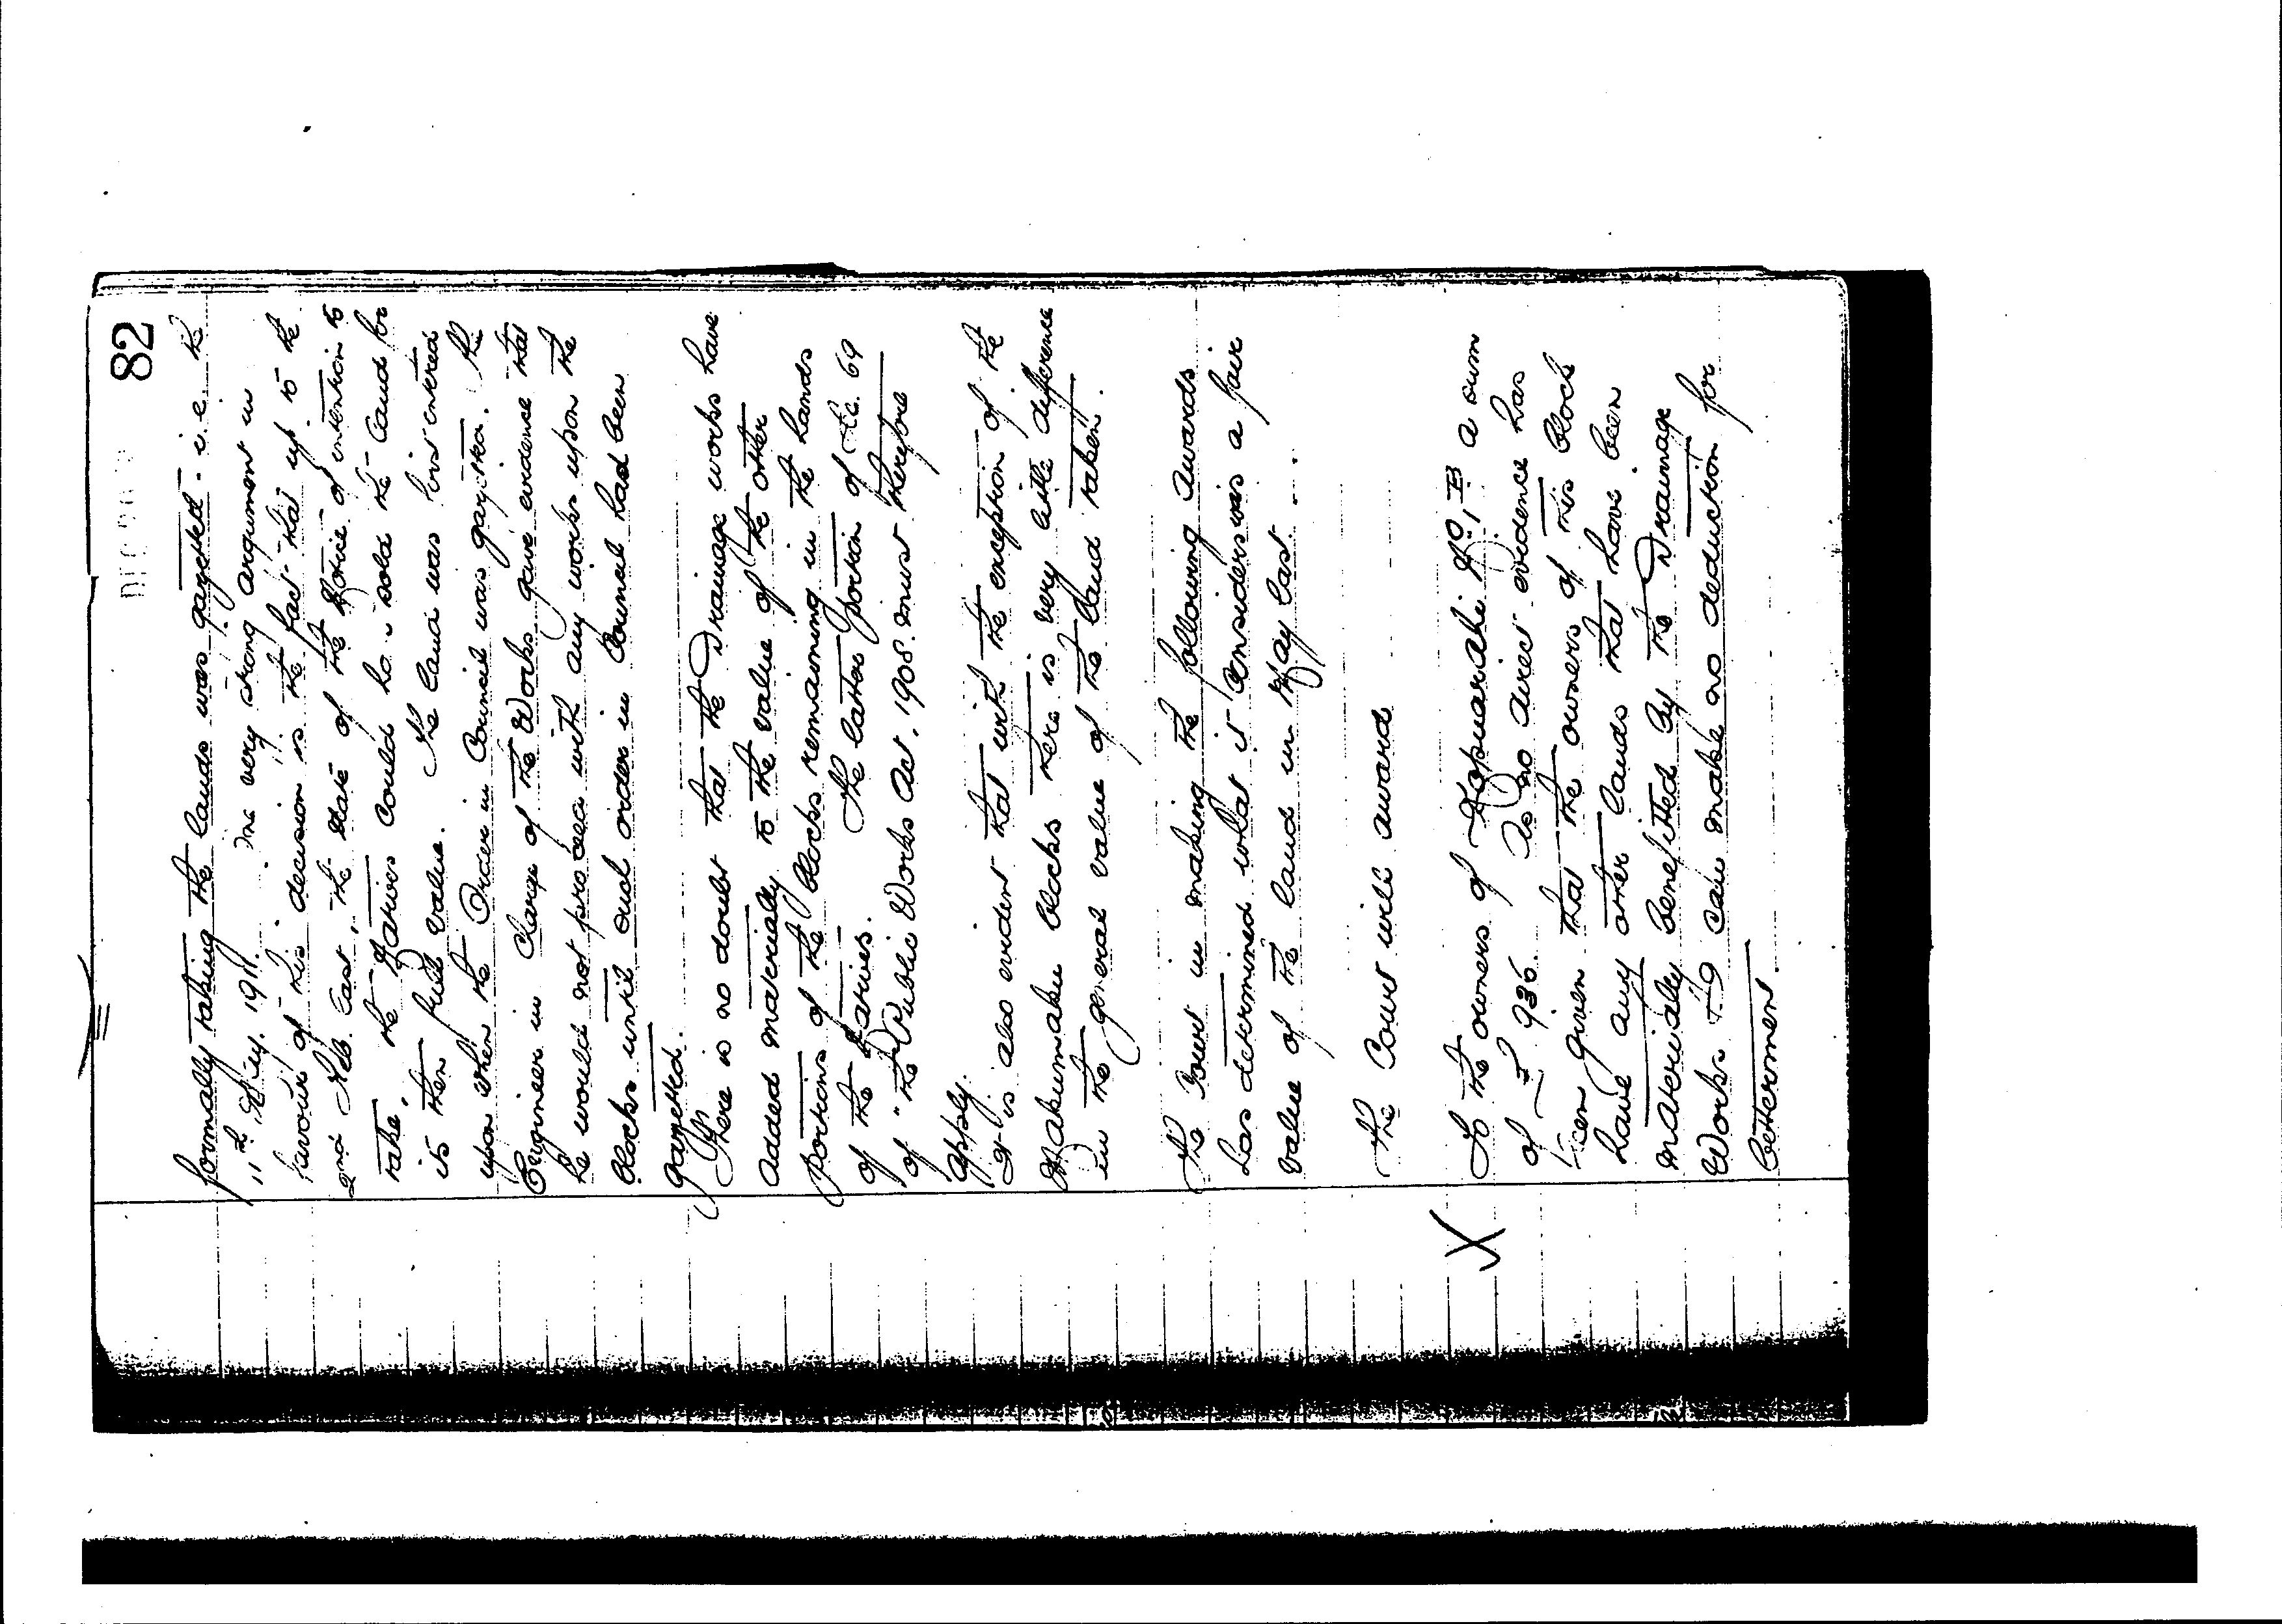 82
formally taking the lands was gazetted. i.e. the
11th May. 1911. One very strong argument in
favour of this decision is the fact that up to the
2nd Feb. last, the date of the Notice of intention to
take, the Natives could have sold the land for
its then full value. The land was first entered
upon when the Order in Council was gazetted. The
Engineer in Charge of the Works gave evidence that
he would not proceed with any works upon the
blocks until such order in Council had been
gazetted.
There is no doubt that the Drainage works have
added materially to the value of the other
portions of the blocks remaining in the hands
of the Natives. The latter portion of Sec. 69
of "the Public Works Act, 1908. must therefore
apply.
It is also evident that with the exception of the
Makumaku blocks there is very little difference
in the general value of the land taken.
The Court in making the following awards
has determined what it considers was a fair
value of the land in May last.
The Court will award
X To the owners of Hopuarahi No 1 B a sum
of £936. As no direct evidence has
been given that the owners of this block
have any other lands that have been
materially benefitted by the Drainage
Works It can make no deduction for
betterment.